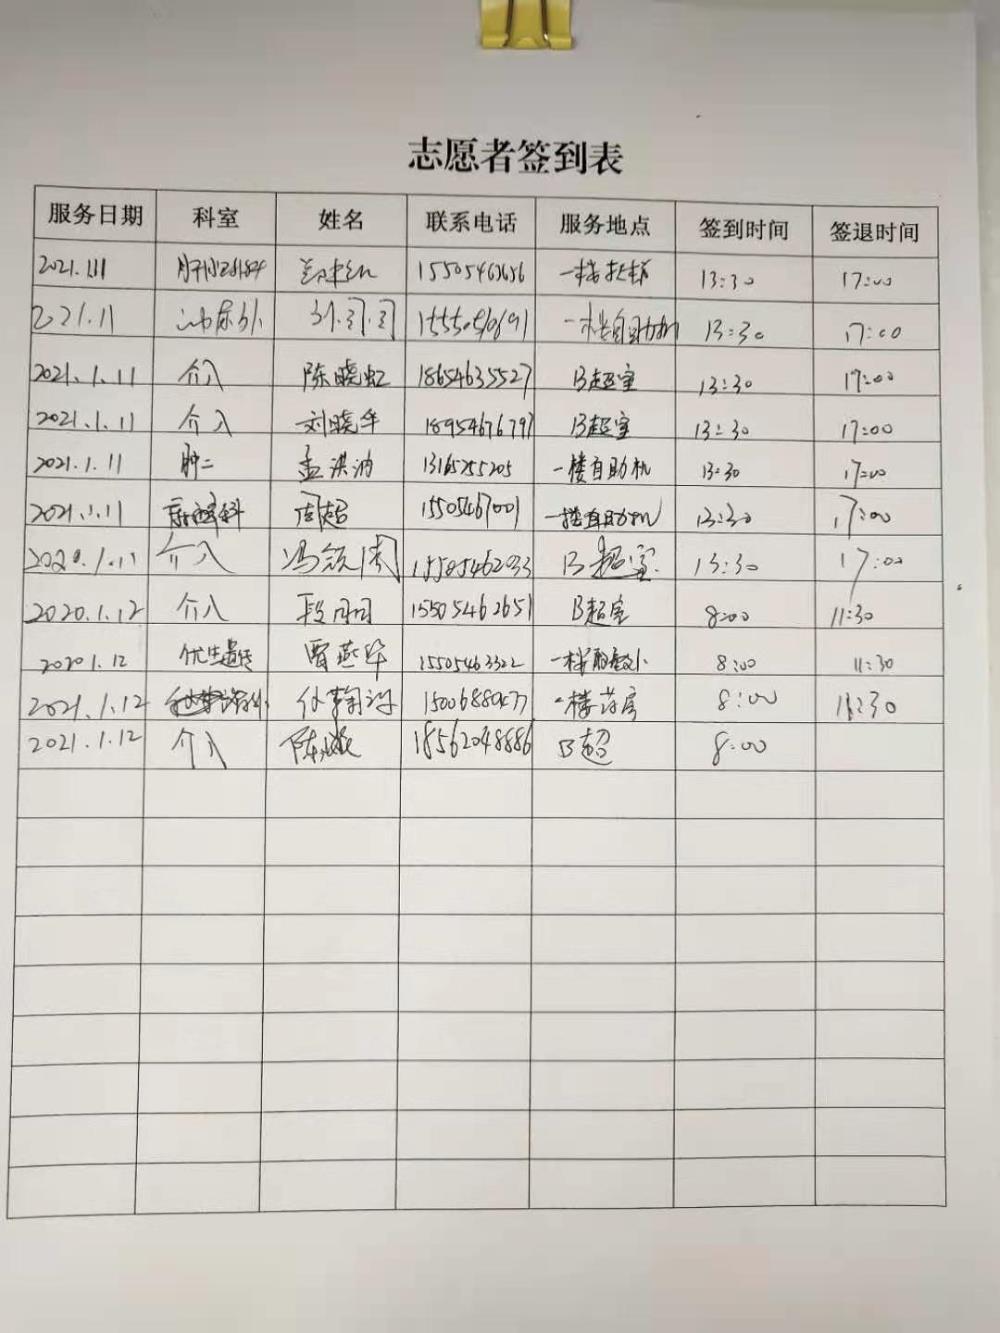 志愿者签到表
服务日期 科室 姓名 联系电话 服务地点 签到时间 签退时间
2021.1.11 13:30 17:00
2021.11 泌尿外 一楼自助机 13:30 17:00
2021.1.11 介入 陈晓虹 18654635527 B超室 13:30 17:00
2021.1.11 介入 刘晓华 18954676797 B超室 13:30 17:00
2021.1.11 肿二 孟洪波 13165255205 一楼自助机 13:30 17:00
2021.1.11 周超 15505467001 一楼自助机 13:30 17:00
2020.1.11 介入 15505462033 B超室 13:30 17:00
2020.1.12 介入 段丹丹 15505462651 B超室 8:00 11:30
2020 1.12 优生遗传 贾燕华 15505463322 8:00 11:30
2021.1.12 15006880477 一楼药房 8:00 11:30
2021.1.12 介入 18562048886 B超 8:00